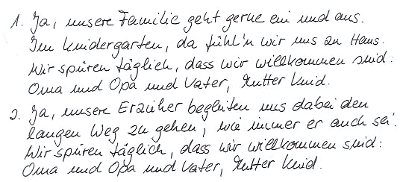 1. Ja, unsere Familie geht gerne ein und aus.
Im Kindergarten, da fühl'n wir uns zu Haus.
Wir spüren täglich, dass wir willkommen sind:
Oma und Opa und Vater, Mutter Kind.
2. Ja, unsere Erzieher begleiten uns dabei den
langen Weg zu gehen, wie immer er auch sei.
Wir spüren täglich, dass wir willkommen sind:
Oma und Opa und Vater, Mutter Kind.